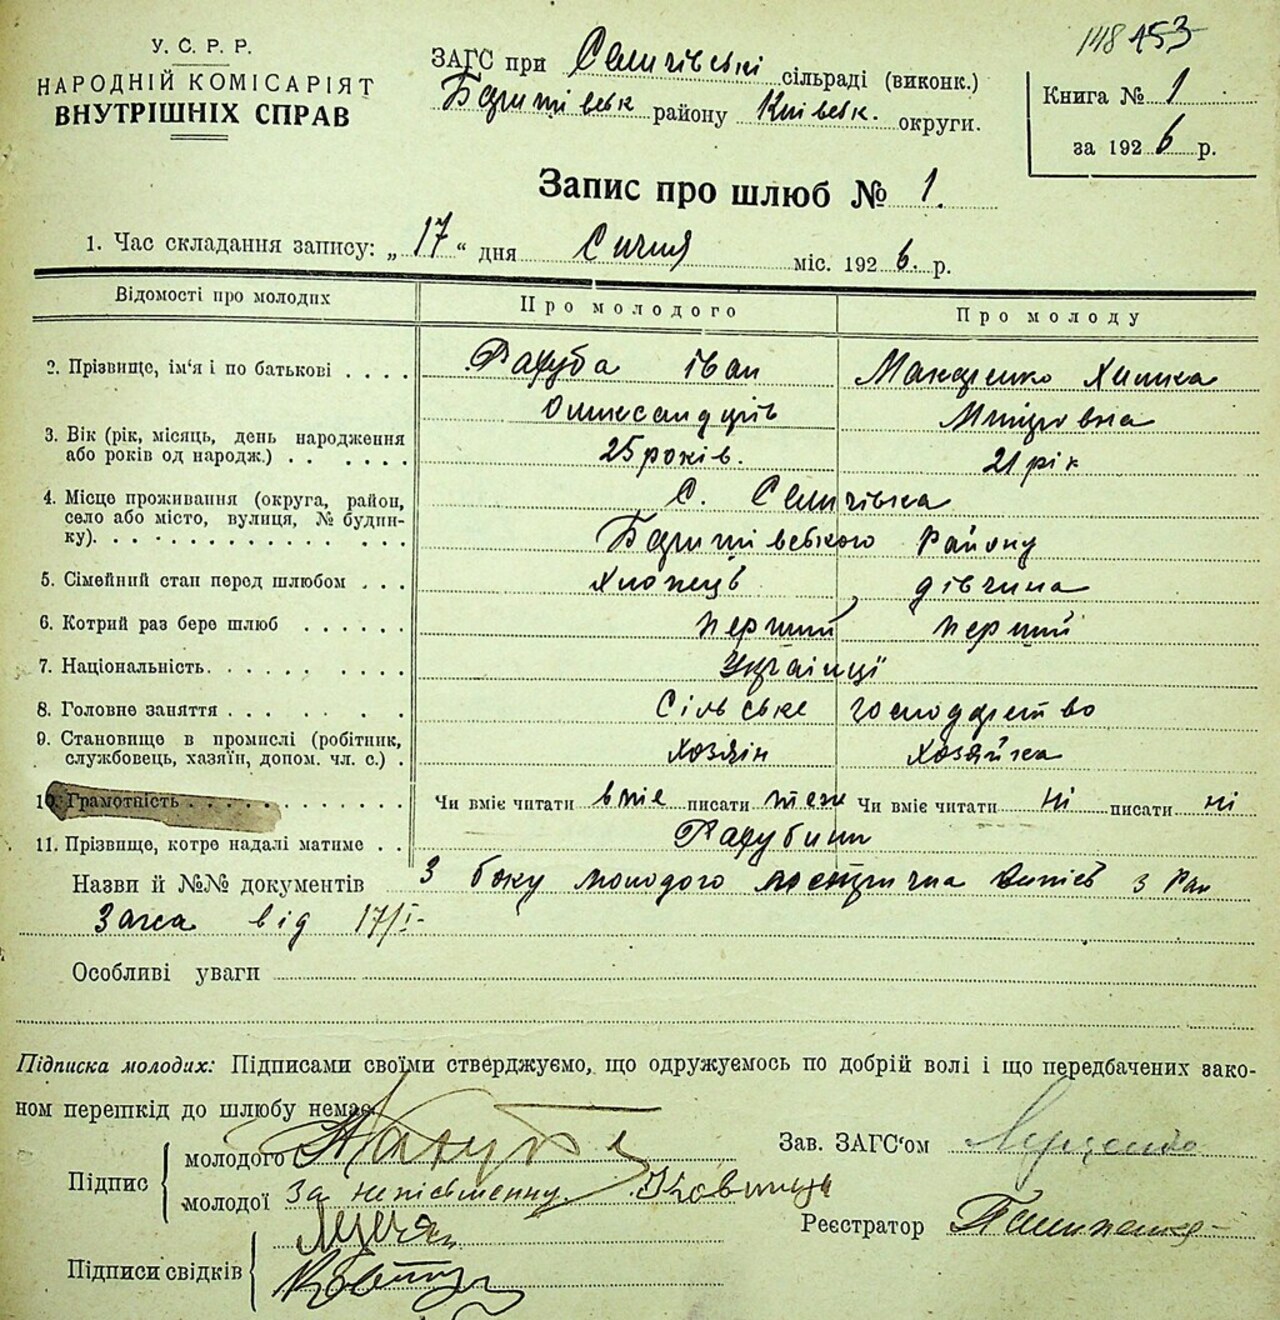 148 153
У. С. Р. Р.
НАРОДНІЙ КОМІСАРІЯТ
ВНУТРІШНІХ СПРАВ
ЗАГС при Семичівські сільраді (виконк.)
району Київськ. округи.
Книга № 1
за 1926 р.
Запис про шлюб № 1.
1. Час складання запису: „17“ дня Січня міс. 1926. р.
Відомості про молодих Про молодого Про молоду
2. Прізвище, ім'я і по батькові . . . . Рахуба Іван Макаренко Химка
Олександрів
3. Вік (рік, місяць, день народження
або років од народж.) . . . . . . 25 років. 21 рік
4. Місце проживання (округа, район,
село або місто, вулиця, № будин-
ку). . . . . . . . . . . . . . С.
району
5. Сімейний стан перед шлюбом . . . хлопець дівчина
6. Котрий раз бере шлюб . . . . . . перший перший
7. Національність. . . . . . . . . Українці
8. Головне заняття . . . . . . . Сільське господарство
9. Становище в промислі (робітник,
службовець, хазяїн, допом. чл. с.) . хозяін хозяйка
10. Грамотність . . . . . . . . . . . Чи вміє читати вміє писати теж Чи вміє читати ні писати ні
11. Прізвище, котре надалі матиме . . Рахубини
Назви й №№ документів З боку молодого метрична випись з Рай
Загса від 17/I-
Особливі уваги
Підписка молодих: Підписами своїми стверджуємо, що одружуємось по добрій волі і що передбачених зако-
ном перешкід до шлюбу немає.
Підпис
молодого Рахуба
молодої За неписьменну
Зав. ЗАГС'ом
Реєстратор
Підписи свідків